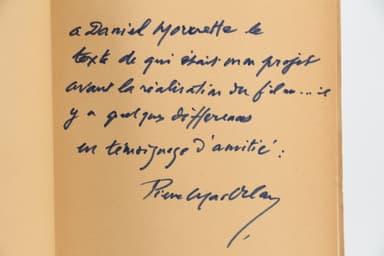 a Daniel Morouette le
texte de qui était mon projet
avant la réalisation du film... il
y a quelques différences
en témoignage d'amitié :
Pierre Mac Orlan